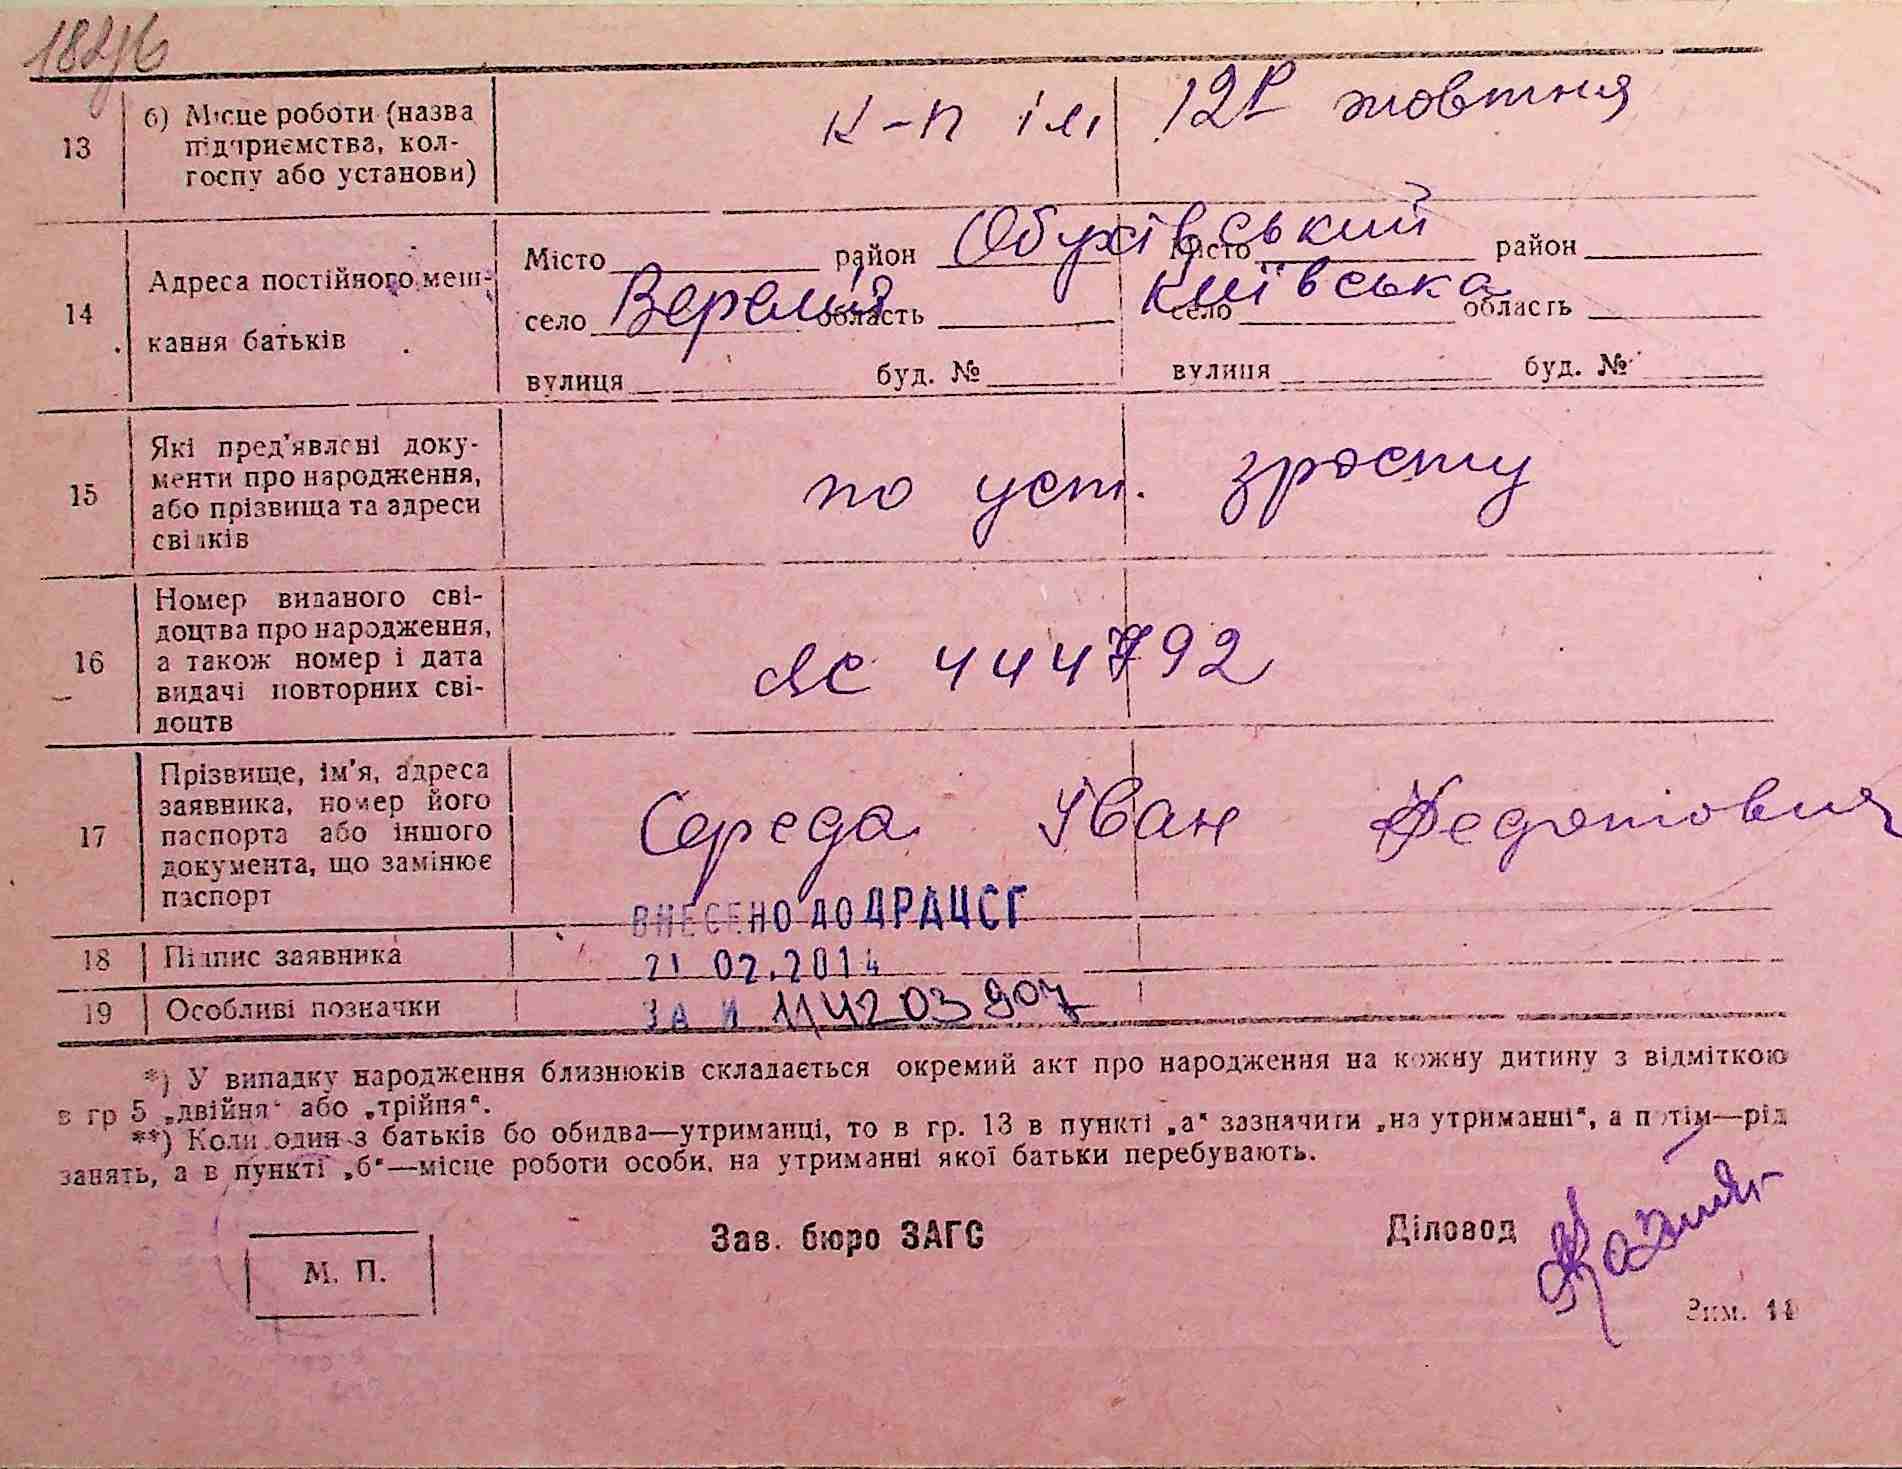 182/6
13
б) Місце роботи (назва
підприємства, кол-
госпу або установи)
к-п ім 12Р жовтня
14
Адреса постійного меш-
кання батьків
Місто район Обухівський Місто район
село Веремія область Київська село область
вулиця буд. № вулиця буд. №
15
Які пред'явлені доку-
менти про народження,
або прізвища та адреси
свідків
по уст. зросту
16
Номер виданого сві-
доцтва про народження,
а також номер і дата
видачі повторних сві-
доцтв
ЯС 444792
17
Прізвище, ім'я, адреса
заявника, номер його
паспорта або іншого
документа, що замінює
паспорт
Середа Іван Федотович
ВНЕСЕНО ДО ДРАЦСГ
18 Підпис заявника
21 02.2014
19 Особливі позначки
ЗА № 114203907
*) У випадку народження близнюків складається окремий акт про народження на кожну дитину з відміткою
в гр 5 „двійня“ або „трійня“.
**) Коли один з батьків бо обидва—утриманці, то в гр. 13 в пункті „а“ зазначити „на утриманні“, а потім—рід
занять, а в пункті „б“—місце роботи особи, на утриманні якої батьки перебувають.
Зав. бюро ЗАГС
Діловод
М. П.
Зим. 11